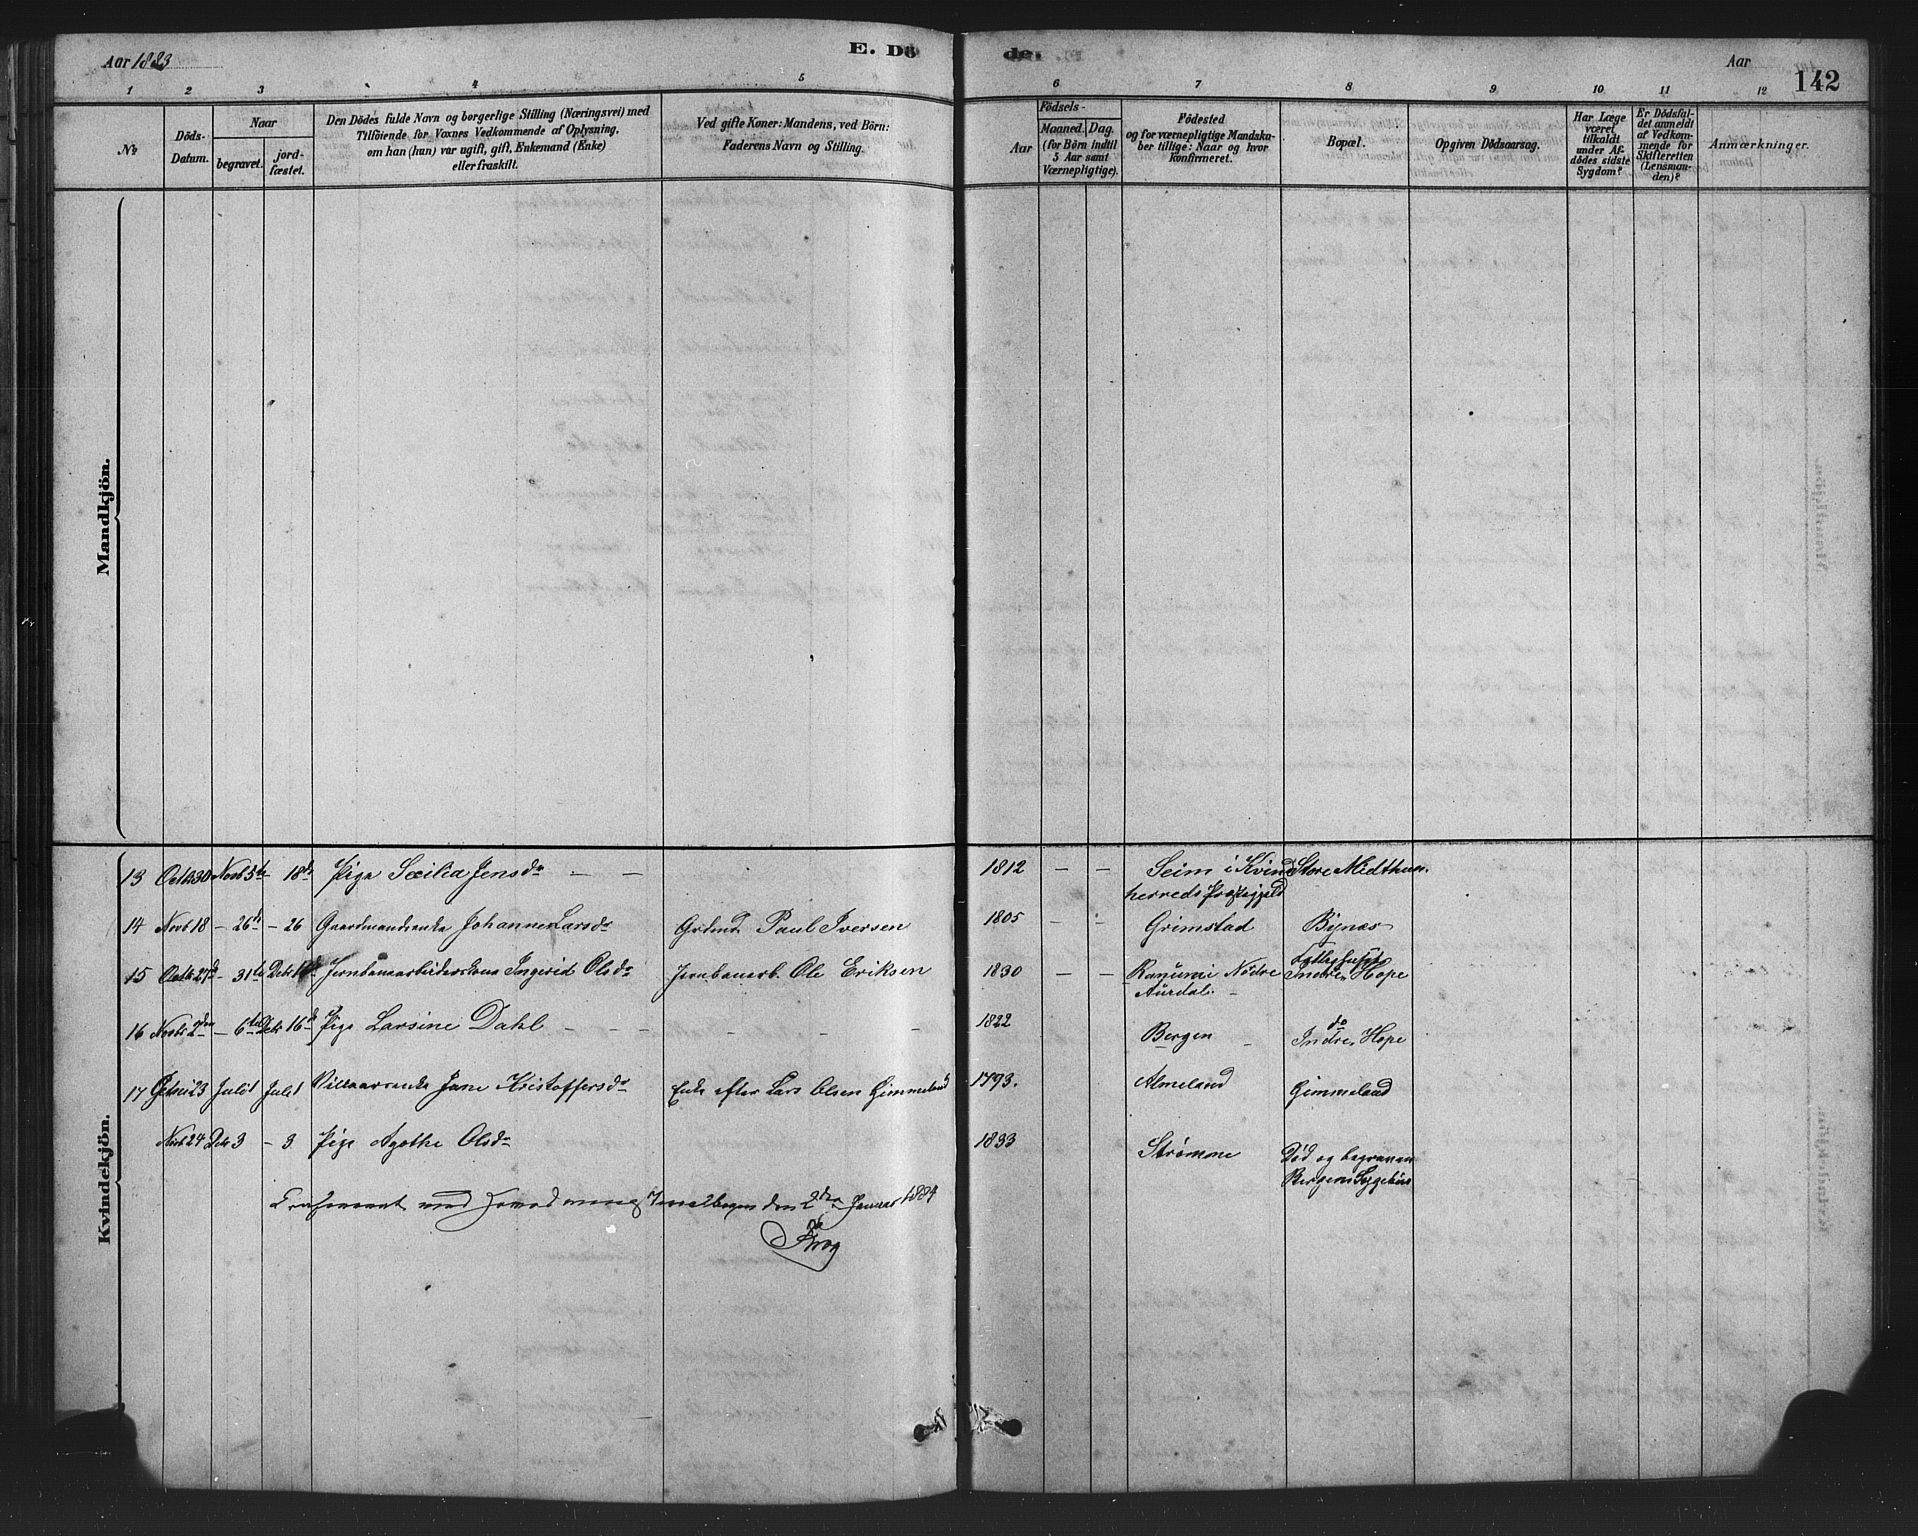 Aar 1883
E. Dö
de.
Aar
142
1 2 3 4 5 6 7 8 9 10 11 12
No
Döds-Datum.
Naar
begravet.
jord-fæstet.
Den Dödes fulde Navn og borgerlige Stilling (Næringsvei) med
Tilföiende for Voxnes Vedkommende af Oplysning,
om han (hun) var ugift, gift, Enkemand (Enke)
eller fraskilt.
Ved gifte Koner: Mandens, ved Börn:
Faderens Navn og Stilling.
Födsels-
Aar
Maaned. Dag.
(for Börn indtil
5 Aar samt
Værnepligtige).
Födested
og for værnepligtige Mandska-
ber tillige: Naar og hvor
Konfirmeret.
Bopæl.
Opgiven Dödsaarsag.
Har Læge
været
tilkaldt
under Af-
dödes sidste
Sygdom?
Er Dödsfal-
det anmeldt
af Vedkom-
mende for
Skifteretten
(Lensman-
den)?
Anmærkninger.
Mandkjön.
Kvindekjön.
13 Octb 30 Novb 5te - 18de Pige Sæilia Jensdr — — 1812 — — Seim i Kvind Store Midthun.
herreds Præstegjeld
14 Novb 18 - 26de - 26 Gaardmandsenke Johanne Larsdr Grdmd Paul Iversen 1805 — — Grimstad Bynes
15 Octb 27d - 31te Debr Jernbanearbeiderskone Ingerid Olsdr Jernbanearb. Ole Eriksen 1830 — — i Nödre Indre Hope
Aurdal.
16 Novbr 2den - 6te Debr 16d Pige Larsine Dahl — — — 1822 Bergen do Indre Hope
17 23 Juli 1 Juli 1 Kristoffersdr Enke efter Lars Olsen Gimmeland 1793. Almeland Gimmeland
Novb 24 Debr 3 - 3 Pige Agathe Olsdr 1833 Strømme Död og begraven
Bergens Sygehus
med den 2den Januar 1884
Krog